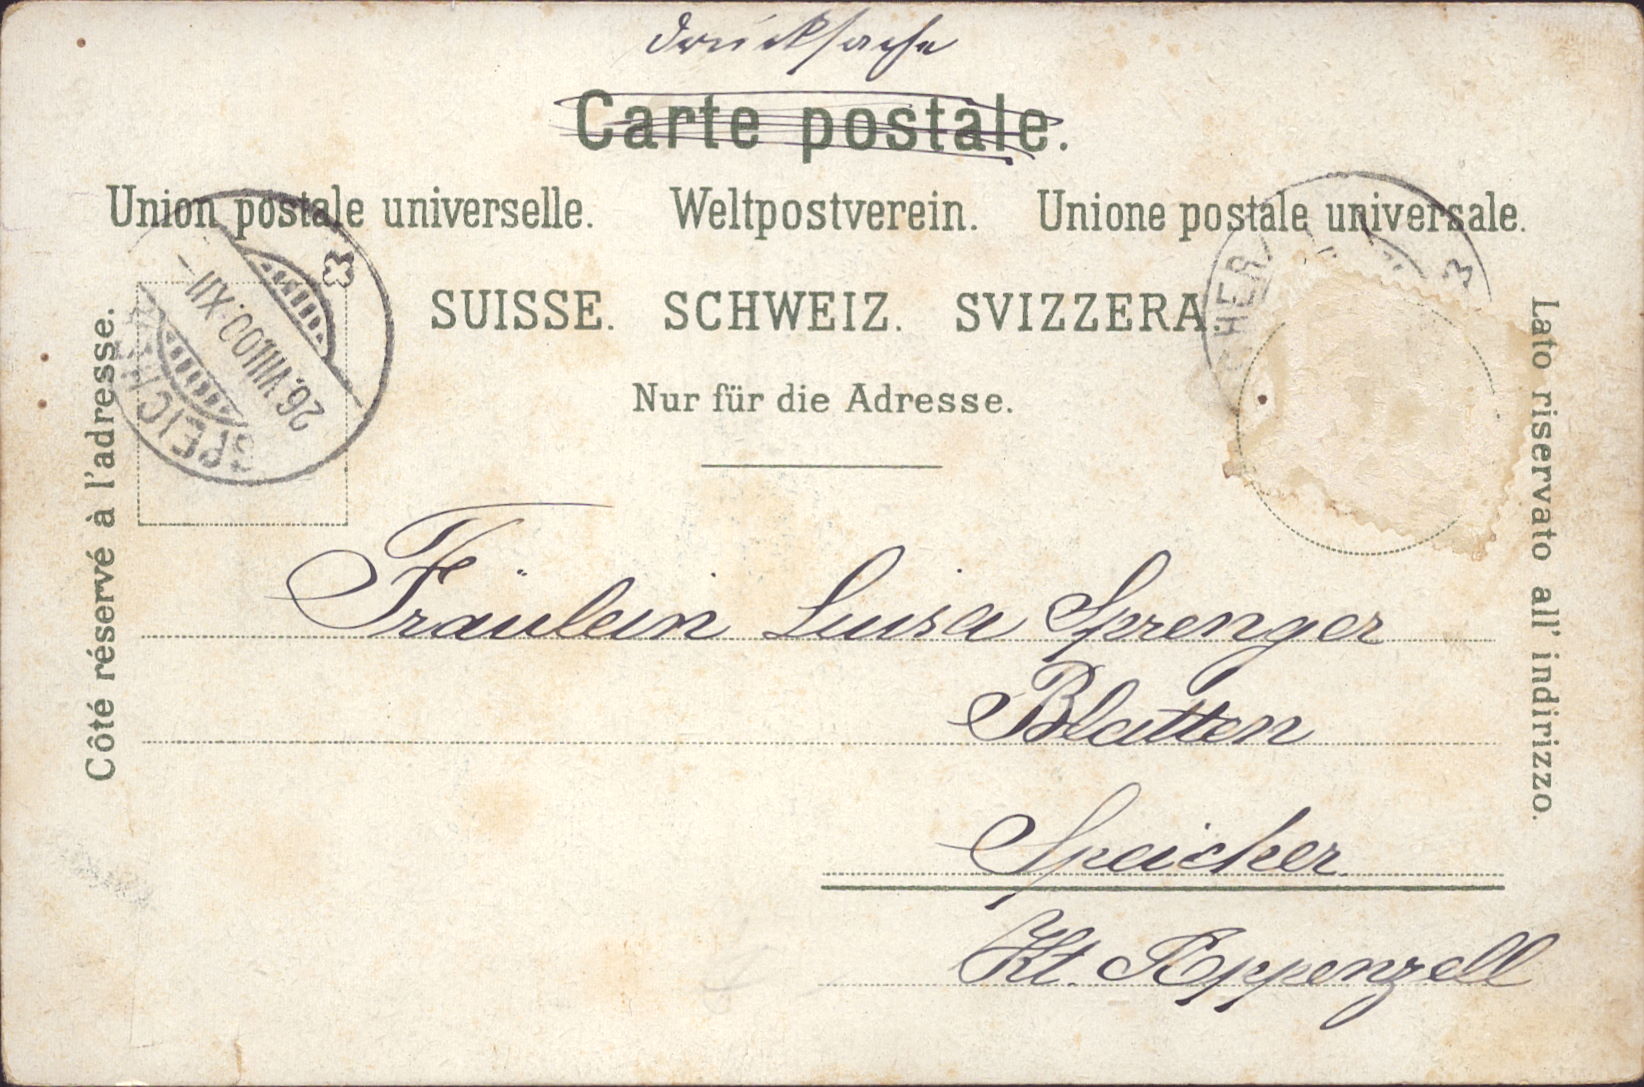 Drucksache
Carte postale.
Union postale universelle. Weltpostverein. Unione postale universale.
SUISSE. SCHWEIZ. SVIZZERA.
Nur für die Adresse.
Côté réservé à l'adresse.
Lato riservato all' indirizzo.
SPEICHER
26.VIII.00.XII-
Fräulein Luisa Sprenger
Blatten
Speicher
Kt. Appenzell